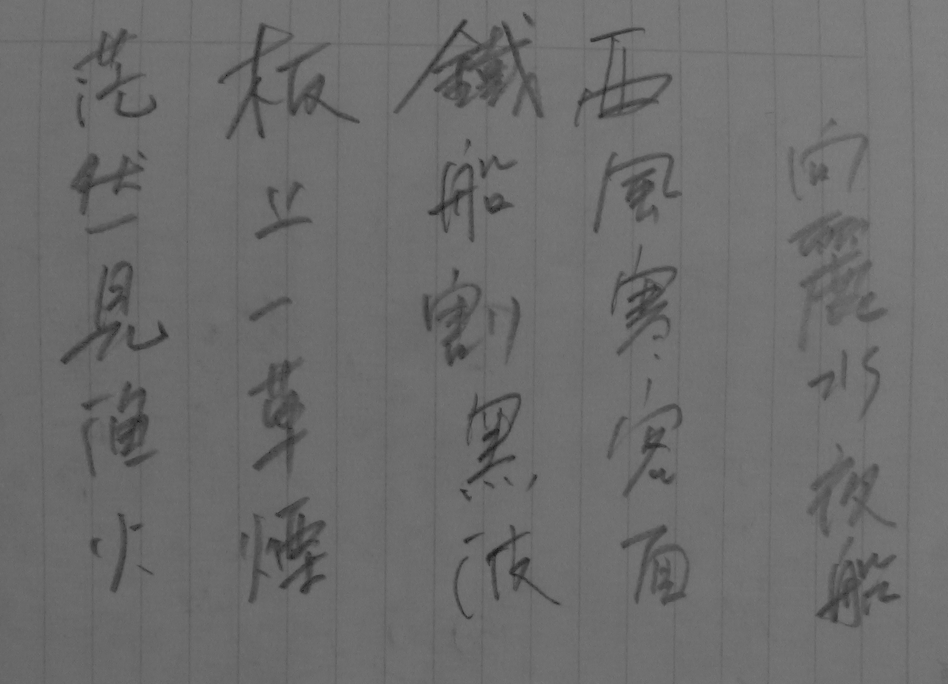 向麗水夜船
西風寒客面
鐵船割黑波
板上一草煙
茫然見漁火